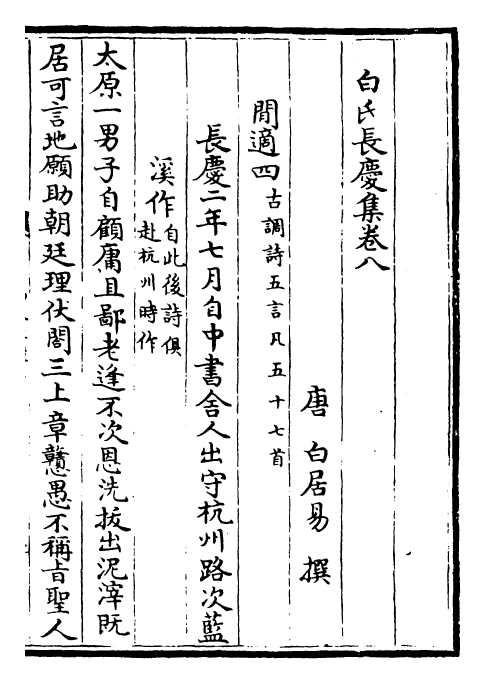 白氏長慶集卷八
唐 白居易 撰
閒適四古調詩五言凡五十七首
長慶二年七月自中書舍人出守杭州路次藍
溪作自此後詩俱赴杭州時作
太原一男子自顧庸且鄙老逢不次恩洗拔出泥滓既
居可言地願助朝廷理伏閤三上章戇愚不稱旨聖人